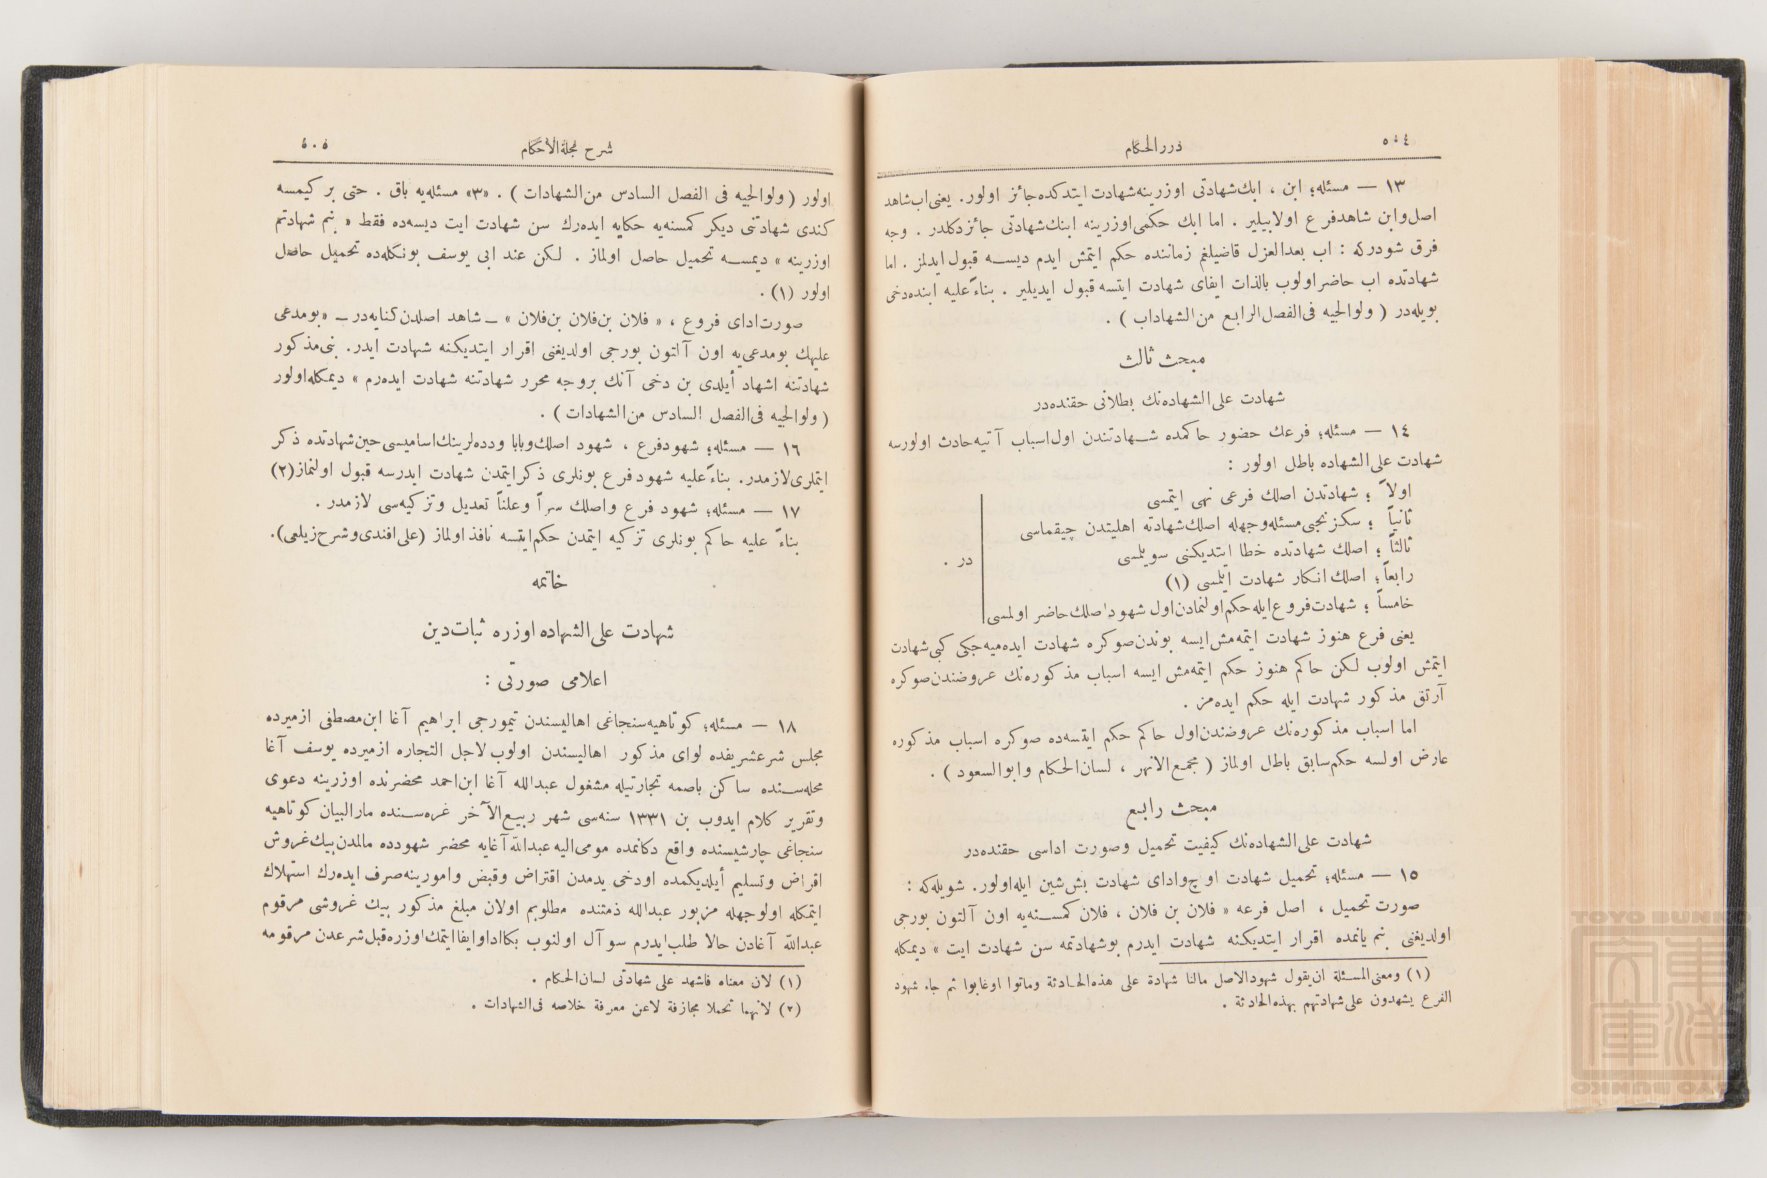 ٥٠٤
دررالحكام
١٣ — مسئله؛ ابن ، ابك شهادتى اوزرينه شهادت ايتدكده جائز اولور. يعنى اب شاهد
اصل وابن شاهد فرع اولابيلير . اما ابك حكمى اوزرينه ابنك شهادتى جائز دكلدر . وجه
فرق شودركه : اب بعدالعزل قاضيلغم زماننده حكم ايتمش ايدم ديسه قبول ايدلمز . اما
شهادتده اب حاضر اولوب بالذات ايفاى شهادت ايتسه قبول ايديلير . بناءً عليه ابنده دخى
بويله در ( ولوالجيه فى الفصل الرابع من الشهاداب ) .
مبحث ثالث
شهادت على الشهاده نك بطلانى حقنده در
١٤ — مسئله؛ فرعك حضور حاكمده شهادتندن اول اسباب آتيه حادث اولورسه
شهادت على الشهاده باطل اولور :
اولاً ؛ شهادتدن اصلك فرعى نهى ايتمسى
ثانياً ؛ سكزنجى مسئله وجهله اصلك شهادته اهليتدن چيقماسى
ثالثاً ؛ اصلك شهادتده خطا ايتديكنى سويلمسى
رابعاً ؛ اصلك انكار شهادت ايتلمسى (١)
خامساً ؛ شهادت فروع ايله حكم اولنمادن اول شهود اصلك حاضر اولمسى
در .
يعنى فرع هنوز شهادت ايتمه مش ايسه بوندن صوكره شهادت ايده ميه جكى كبى شهادت
ايتمش اولوب لكن حاكم هنوز حكم ايتمه مش ايسه اسباب مذكوره نك عروضندن صوكره
آرتق مذكور شهادت ايله حكم ايده مز .
اما اسباب مذكوره نك عروضندن اول حاكم حكم ايتسه ده صوكره اسباب مذكوره
عارض اولسه حكم سابق باطل اولماز ( مجمع الانهر ، لسان الحكام وابوالسعود ) .
مبحث رابع
شهادت على الشهاده نك كيفيت تحميل وصورت اداسى حقنده در
١٥ — مسئله؛ تحميل شهادت اوچ واداى شهادت بش شين ايله اولور. شويله كه :
صورت تحميل ، اصل فرعه « فلان بن فلان ، فلان كمسنه يه اون آلتون بورجى
اولديغنى بنم يانمده اقرار ايتديكنه شهادت ايدرم بوشهادتمه سن شهادت ايت » ديمكله
(١) ومعنى المسئلة ان يقول شهودالاصل مالنا شهادة على هذه الحادثة وماتوا اوغابوا ثم جاء شهود
الفرع يشهدون على شهادتهم بهذه الحادثة .
شرح مجلة الاحكام
٥٠٥
اولور ( ولوالجيه فى الفصل السادس من الشهادات ) . «٣» مسئله يه باق . حتى بر كيمسه
كندى شهادتنى ديكر كمسنه يه حكايه ايده رك سن شهادت ايت ديسه ده فقط « بنم شهادتم
اوزرينه » ديمسه تحميل حاصل اولماز . لكن عند ابى يوسف بونكله ده تحميل حاصل
اولور (١) .
صورت اداى فروع ، « فلان بن فلان بن فلان » — شاهد اصلدن كنايه در — « بومدعى
عليهك بو مدعى يه اون آلتون بورجى اولديغنى اقرار ايتديكنه شهادت ايدر. بنى مذكور
شهادتنه اشهاد أيلدى بن دخى آنك بروجه محرر شهادتنه شهادت ايده رم » ديمكله اولور
( ولوالجيه فى الفصل السادس من الشهادات ) .
١٦ — مسئله؛ شهود فرع ، شهود اصلك وبابا ودده لرينك اساميسى حين شهادتده ذكر
ايتملرى لازمدر. بناءً عليه شهود فرع بونلرى ذكر ايتمدن شهادت ايدرسه قبول اولنماز (٢)
١٧ — مسئله؛ شهود فرع واصلك سراً وعلناً تعديل وتزكيه سى لازمدر .
بناءً عليه حاكم بونلرى تزكيه ايتمدن حكم ايتسه نافذ اولماز (على افندى وشرح زيلعى).
خاتمه
شهادت على الشهاده اوزره ثبات دين
اعلامى صورتى :
١٨ — مسئله؛ كوتاهيه سنجاغى اهاليسندن تيمورجى ابراهيم آغا ابن مصطفى ازميرده
مجلس شرع شريفده لواى مذكور اهاليسندن اولوب لاجل التجاره ازميرده يوسف آغا
محله سنده ساكن باصمه تجارتيله مشغول عبدالله آغا ابن احمد محضرنده اوزرينه دعوى
وتقرير كلام ايدوب بن ١٣٣١ سنه سى شهر ربيع الآخر غره سنده مارالبيان كوتاهيه
سنجاغى چارشيسنده واقع دكانمده مومى اليه عبدالله آغايه محضر شهودده مالمدن بيك غروش
اقراض وتسليم أيلديكمده اودخى يدمدن اقتراض وقبض وامورينه صرف ايده رك استهلاك
ايتمكله اولوجهله مزبور عبدالله ذمتنده مطلوبم اولان مبلغ مذكور بيك غروشى مرقوم
عبدالله آغادن حالا طلب ايدرم سوآل اولنوب بكا ادا وايفا ايتمك اوزره قبل شرعدن مرقومه
(١) لان معناه فاشهد على شهادتى لسان الحكام .
(٢) لانهما تحملا مجازفة لاعن معرفة خلاصه فى الشهادات .
TOYO BUNKO
東洋文庫
TOYO BUNKO